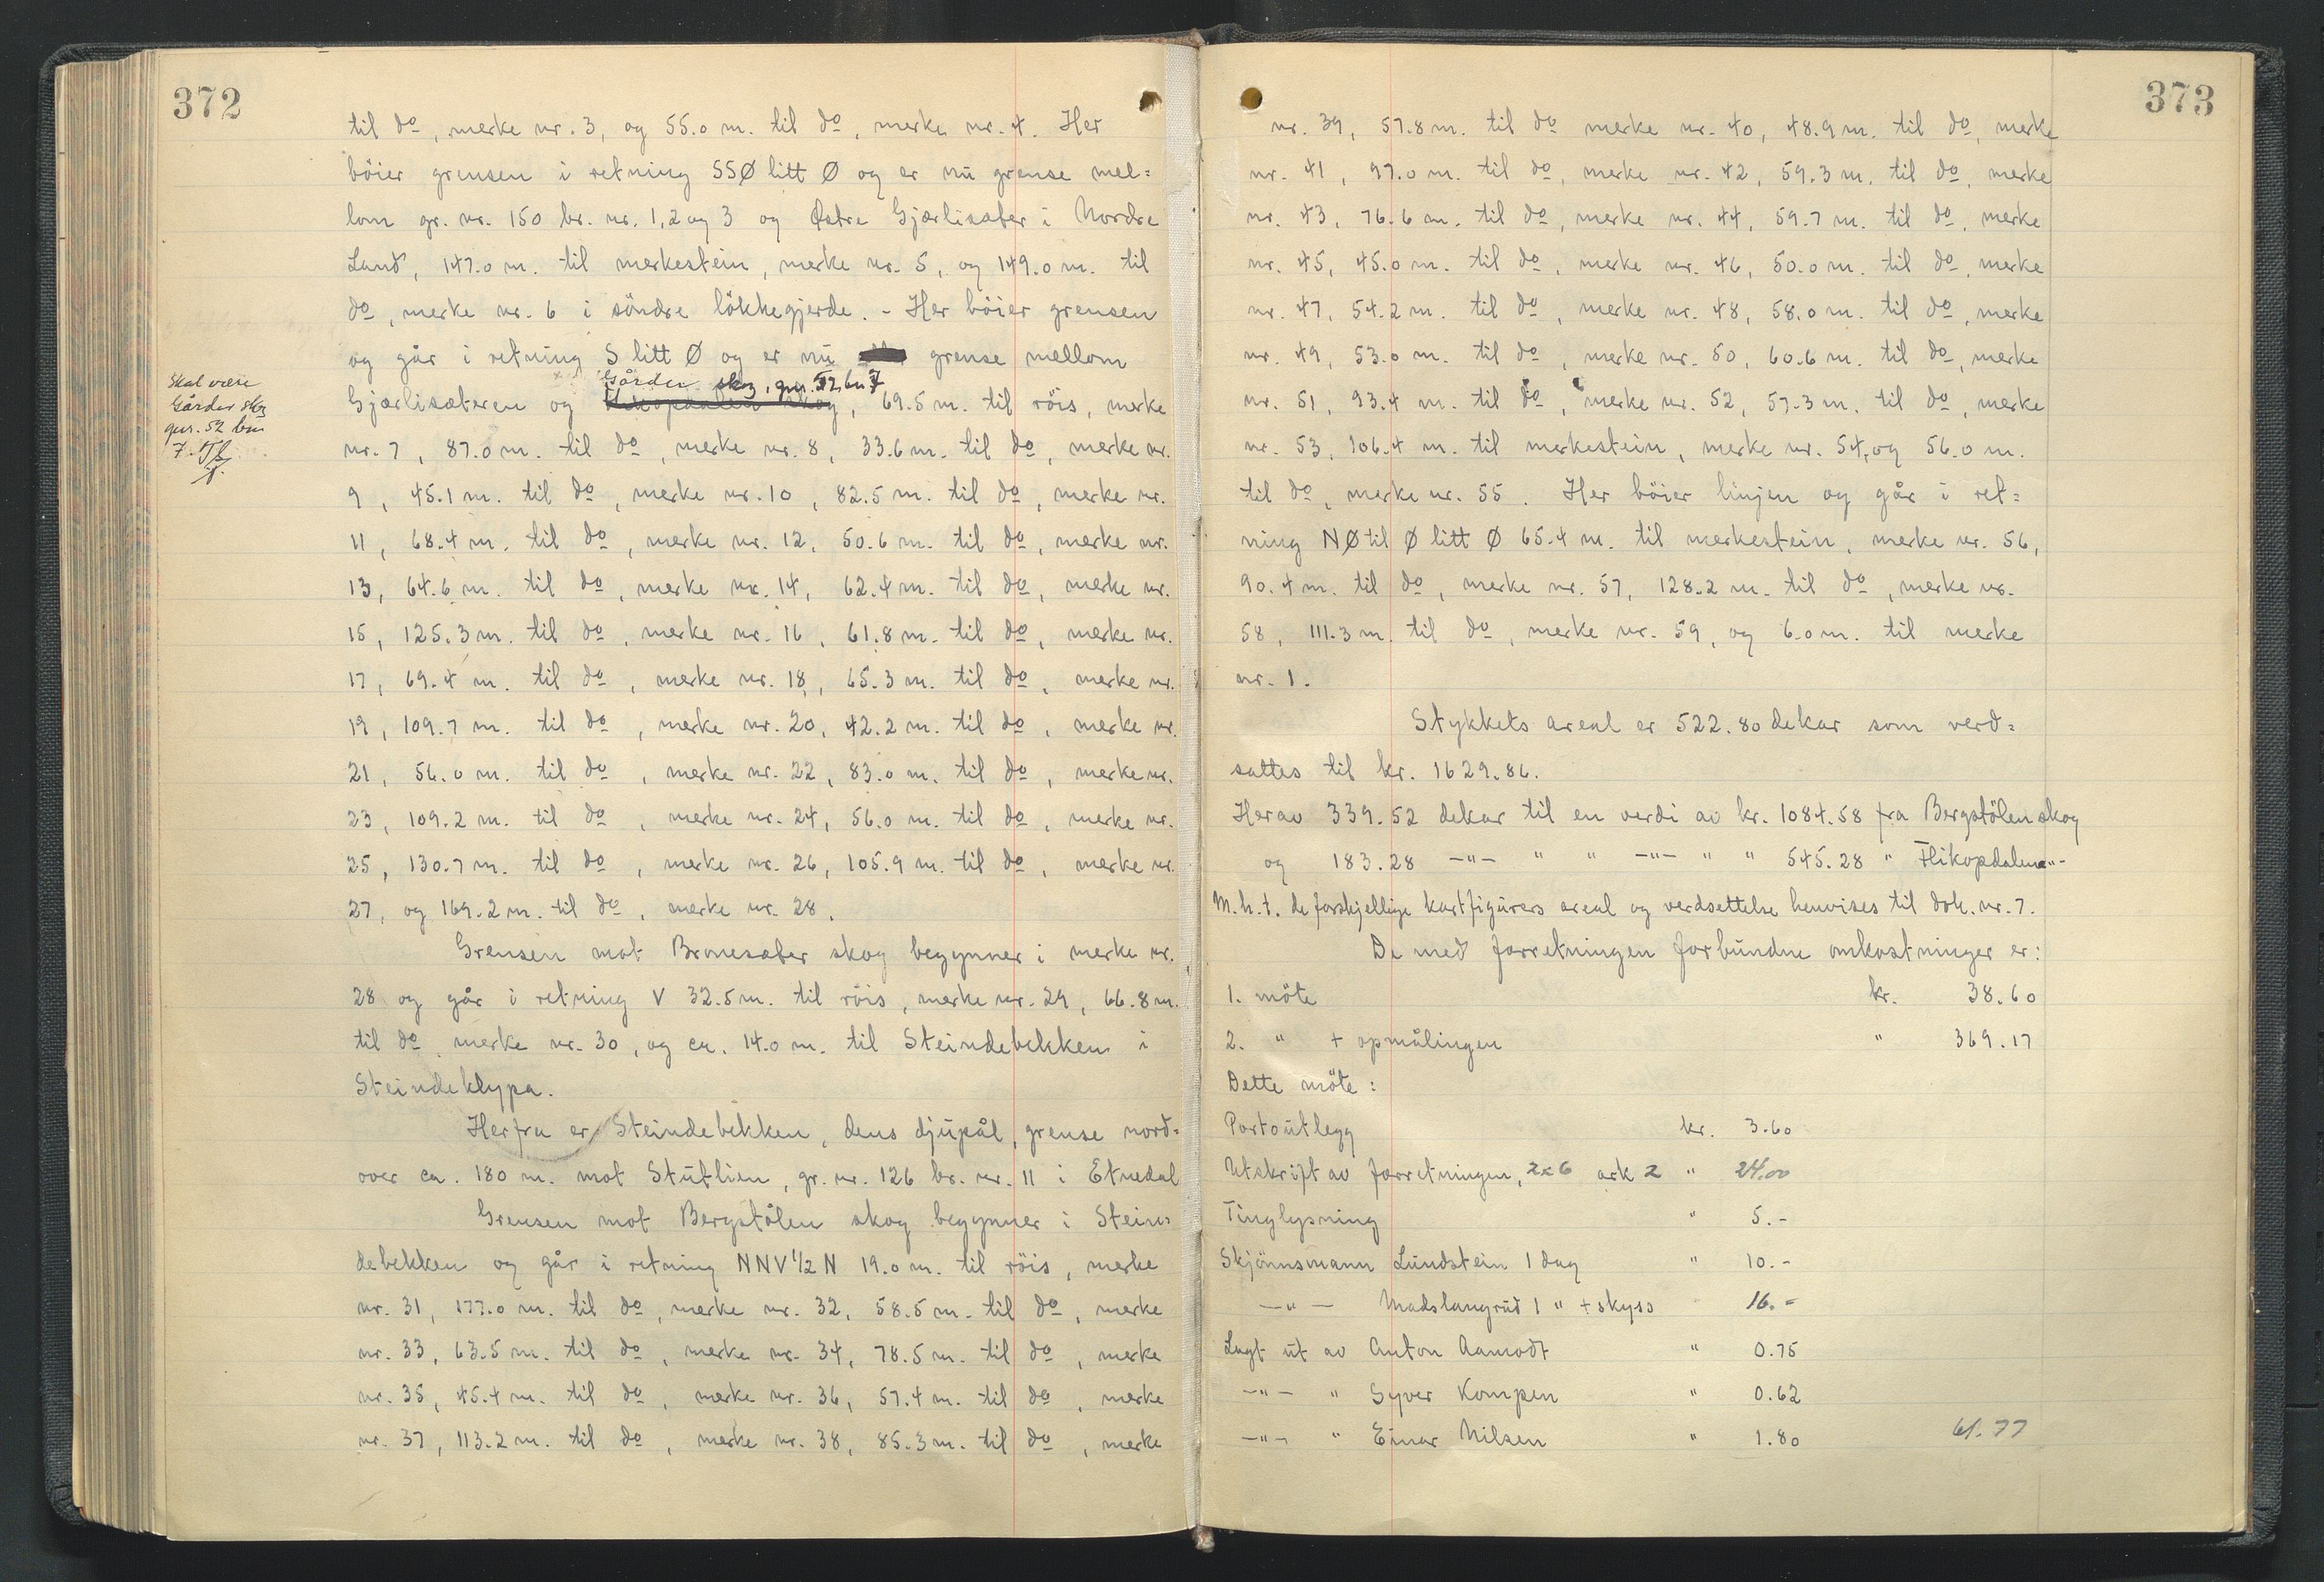 372
til dº, merke nr. 3, og 55.0 m. til dº, merke nr. 4. Her
böier grensen i retning SSØ litt Ø og er nu grense mel=
lom gr. nr. 150 br. nr. 1, 2 og 3 og Østre Gjærlisæter i Nordre
Land, 147.0 m. til merkestein, merke nr. 5, og 149.0 m. til
dº, merke nr. 6 i söndre lökkegjerde. - Her böier grensen
og går i retning S litt Ø og er nu grense mellom
Gården skog, gnr. 52, bn 7
Gjærlisæteren og skog, 69.5 m. til röis, merke
Skal være
Gården skog
gnr. 52 bnr
7.
nr. 7, 87.0 m. til dº, merke nr. 8, 33.6 m. til dº, merke nr.
9, 45.1 m. til dº, merke nr. 10, 82.5 m. til dº, merke nr.
11, 68.4 m. til dº, merke nr. 12, 50.6 m. til dº, merke nr.
13, 64.6 m. til dº, merke nr. 14, 62.4 m. til dº, merke nr.
15, 125.3 m. til dº, merke nr. 16, 61.8 m. til dº, merke nr.
17, 69.4 m. til dº, merke nr. 18, 65.3 m. til dº, merke nr.
19, 109.7 m. til dº, merke nr. 20, 42.2 m. til dº, merke nr.
21, 56.0 m. til dº, merke nr. 22, 83.0 m. til dº, merke nr.
23, 109.2 m. til dº, merke nr. 24, 56.0 m. til dº, merke nr.
25, 130.7 m. til dº, merke nr. 26, 105.9 m. til dº, merke nr.
27, og 169.2 m. til dº, merke nr. 28.
Grensen mot Bronesæter skog begynner i merke nr.
28 og går i retning V 32.5 m. til röis, merke nr. 29, 66.8 m.
til dº, merke nr. 30, og ca. 14.0 m. til Steindebekken i
Steindeklypa.
Herfra er Steindebekken, dens djupål, grense nord=
over ca. 180 m. mot Stutlien, gr. nr. 126 br. nr. 11 i Etnedal
Grensen mot Bergstölen skog begynner i Stein=
debekken og går i retning NNV 1/2 N 19.0 m. til röis, merke
nr. 31, 177.0 m. til dº, merke nr. 32, 58.5 m. til dº, merke
nr. 33, 63.5 m. til dº, merke nr. 34, 78.5 m. til dº, merke
nr. 35, 45.4 m. til dº, merke nr. 36, 57.4 m. til dº, merke
nr. 37, 113.2 m. til dº, merke nr. 38, 85.3 m. til dº, merke
373
nr. 39, 57.8 m. til dº merke nr. 40, 48.9 m. til dº, merke
nr. 41, 97.0 m. til dº, merke nr. 42, 59.3 m. til dº, merke
nr. 43, 76.6 m. til dº, merke nr. 44, 59.7 m. til dº, merke
nr. 45, 45.0 m. til dº, merke nr. 46, 50.0 m. til dº, merke
nr. 47, 54.2 m. til dº, merke nr. 48, 58.0 m. til dº, merke
nr. 49, 53.0 m. til dº, merke nr. 50, 60.6 m. til dº, merke
nr. 51, 93.4 m. til dº, merke nr. 52, 57.3 m. til dº, merke
nr. 53, 106.4 m. til merkestein, merke nr. 54, og 56.0 m.
til dº, merke nr. 55. Her böier linjen og går i ret=
ning NØ til Ø litt Ø 65.4 m. til merkestein, merke nr. 56,
90.4 m. til dº, merke nr. 57, 128.2 m. til dº, merke nr.
58, 111.3 m. til dº, merke nr. 59, og 6.0 m. til merke
nr. 1.
Stykkets areal er 522.80 dekar som verd=
sattes til kr. 1629.86.
Herav 339.52 dekar til en verdi av kr. 1084.58 fra Bergstölen skog
og 183.28 -"- " " -"- " " 545.28 " Flikopdalens -"-
M.h.t. de forskjellige kartfigurers areal og verdsettelse henvises til dok. nr. 7.
De med forretningen forbundne omkostninger er:
1. möte kr. 38.60
2. " + opmålingen " 369.17
Dette möte:
Portoutlegg kr. 3.60
Utskrift av forretningen, 2x6 ark 2 " 24.00
Tinglysning " 5.-
Skjönnsmann Lundstein 1 dag " 10.-
-"- Madslangrud 1 " + skyss 16.-
Lagt ut av Anton Aamodt " 0.75
-"- " Syver Kompen " 0.62
-"- " Einar Nilsen " 1.80 61.77